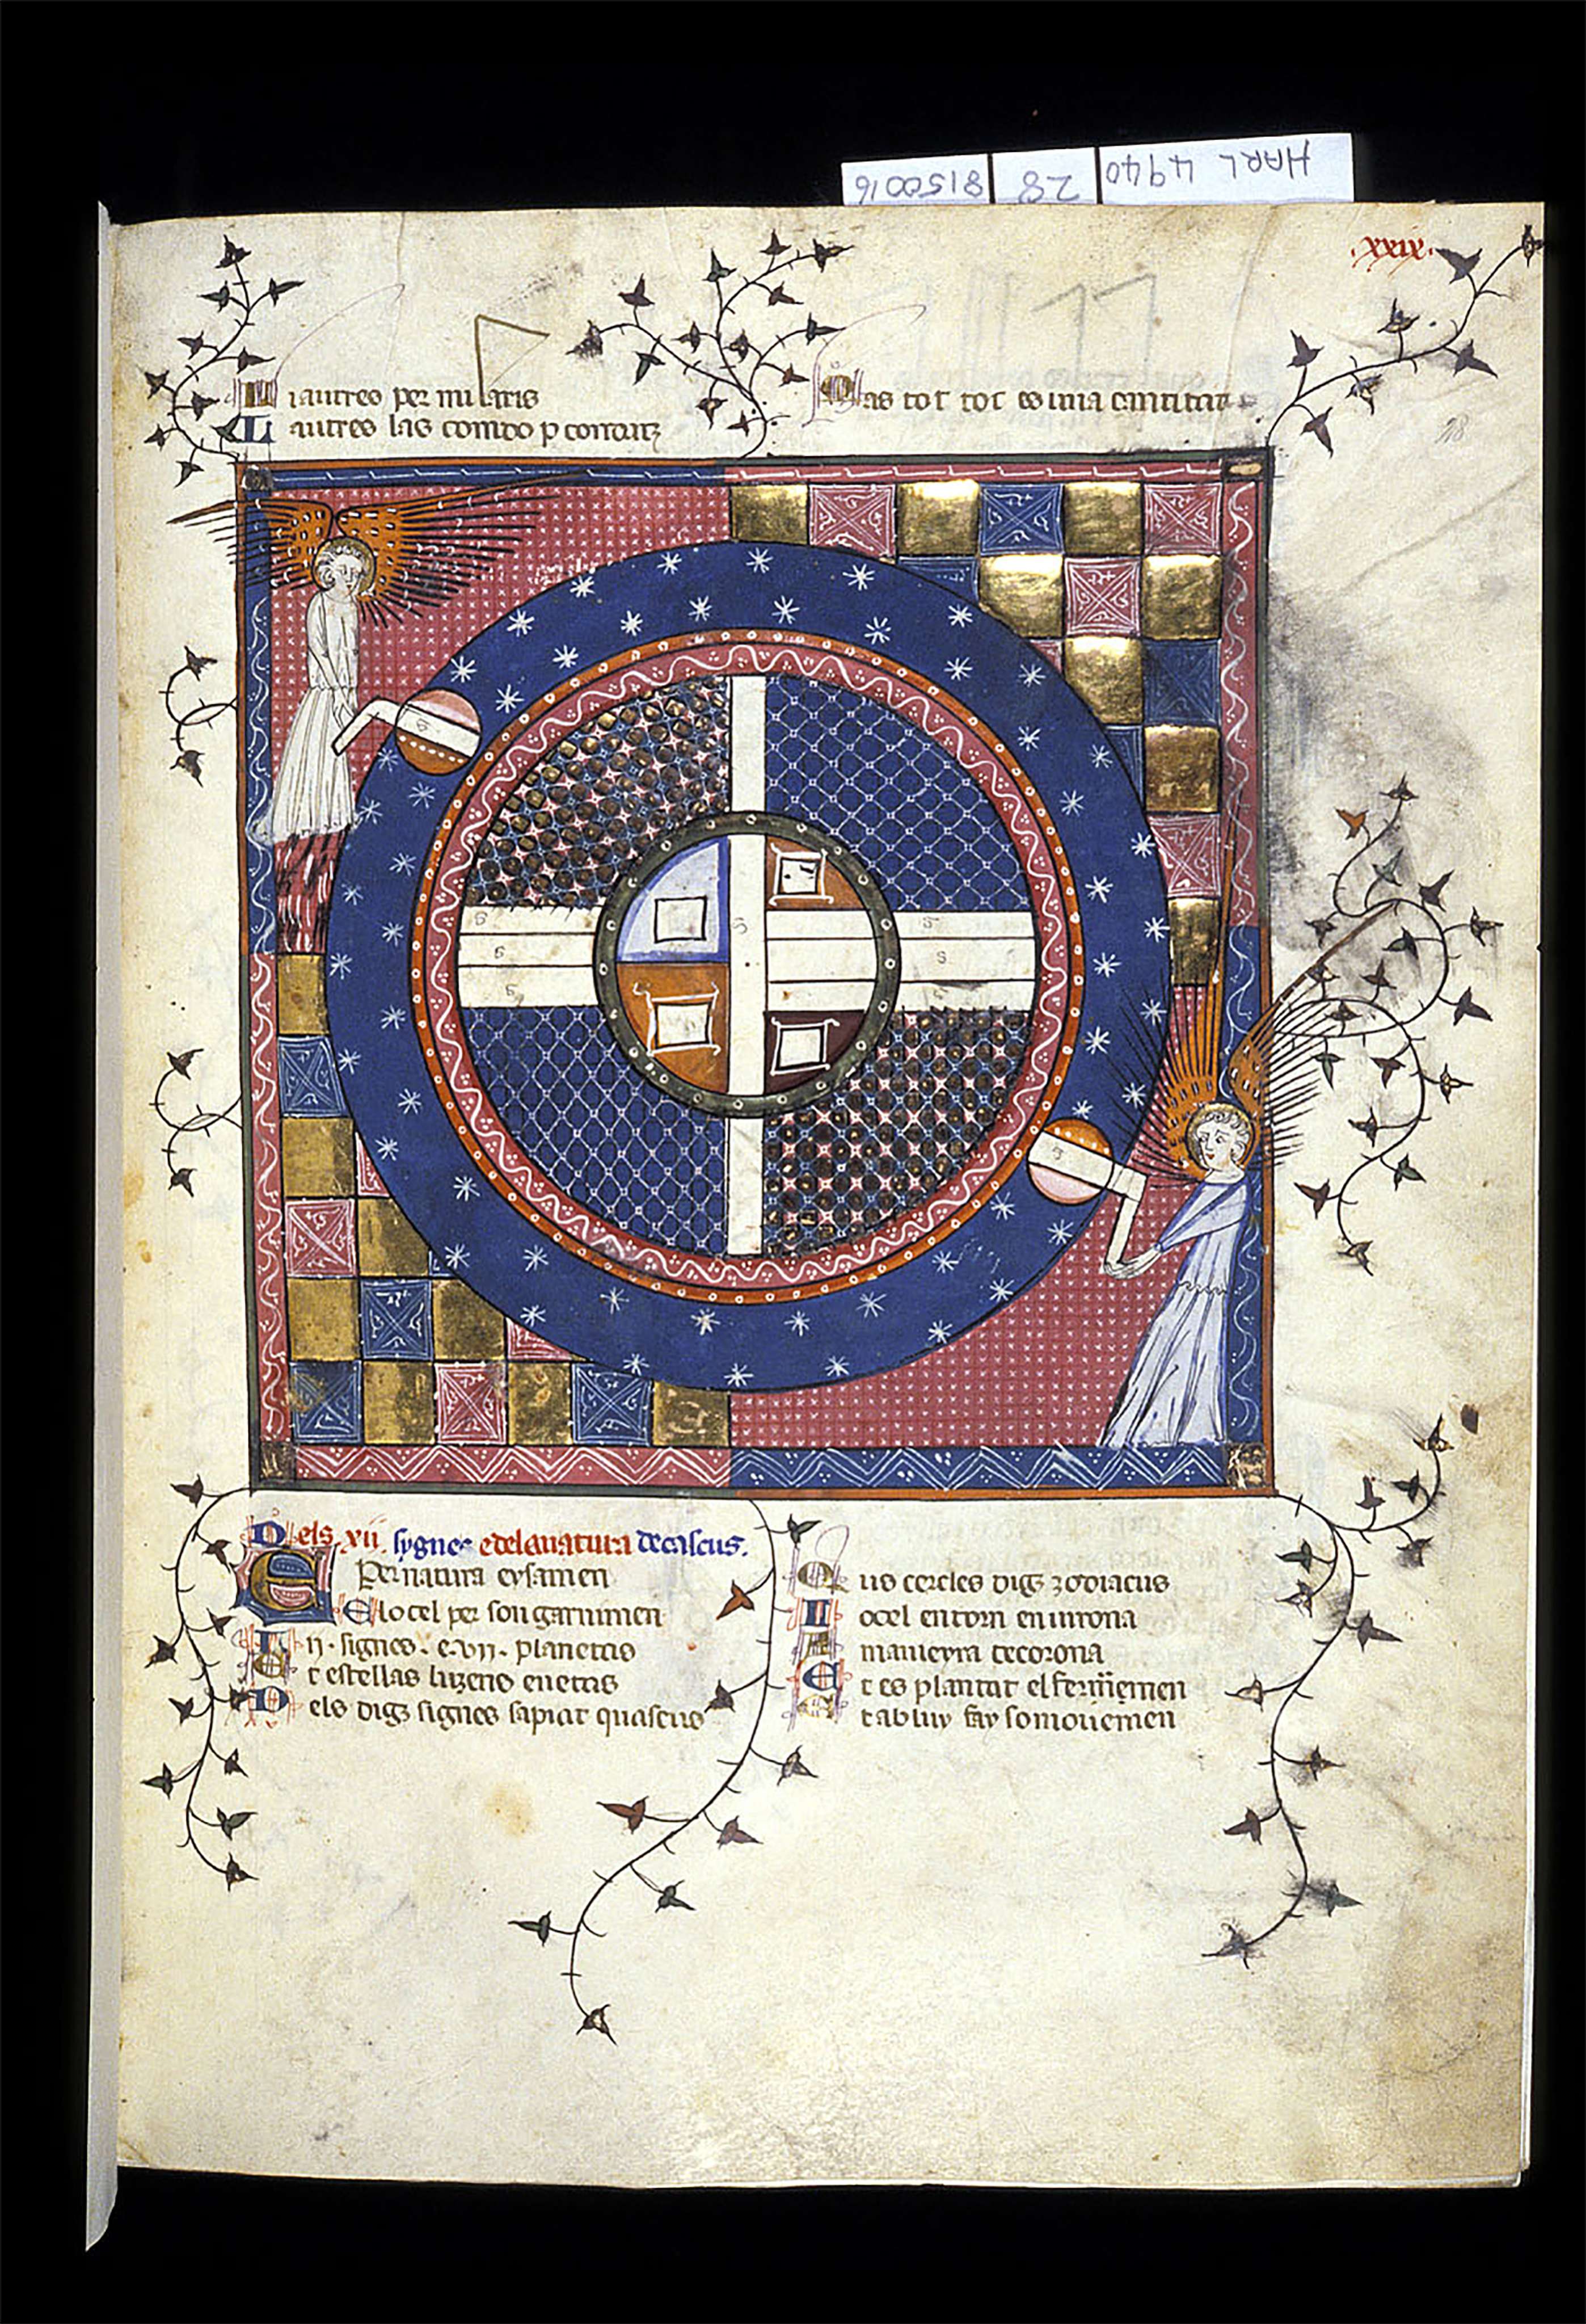 HARL 4940
28
8150016
.xxix.
28
li autres per miliaris
L autres las comto p cordatz
Mas tot tot es una cantitat
Dels .xii. sygnes e dela natura de cascus.
E Per natura eyssamen
E lo cel per son garnimen
xij. signes. e. vij. planetas
E t estellas luzens e netas
D els digz signes sapiat quascus
Q us cercles digz zodiacus
L o cel entorn enuirona
A manieyra de corona
E t es plantat el fermemen
E t ab luy fay so mouemen